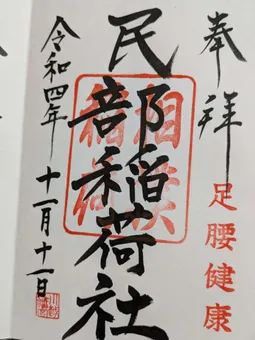 奉拝
足腰健康
民部稲荷社
相撲
稲荷
令和四年 十一月十一日